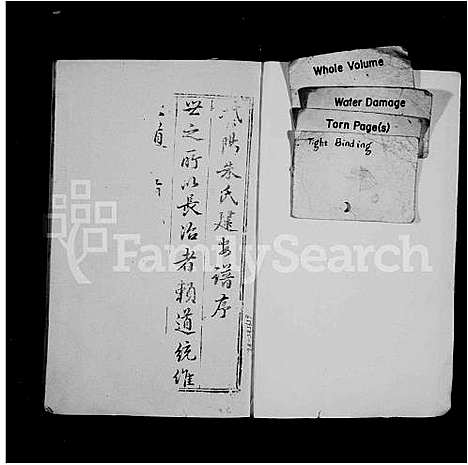 朱氏建安譜序
世之所以長治者賴道統維
Whole Volume
Water Damage
Torn Page(s)
Tight Binding
FamilySearch